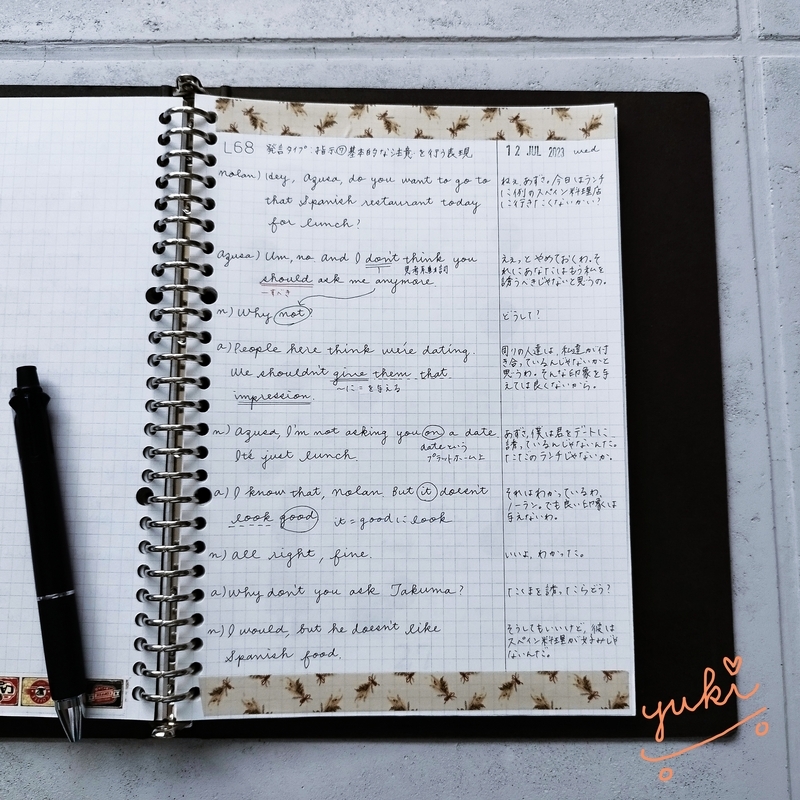 L68 発言タイプ:指示⑦基本的な注意を行う表現
12 JUL 2023 wed
Nolan) Hey, Azusa, do you want to go to
that Spanish restaurant today
for lunch?
ねぇ、あずさ。今日はランチ
に例のスペイン料理店
に行きたくないかい?
Azusa) Um, no and I don't think you
思考系動詞
should ask me anymore.
〜すべき
ええっとやめておくわ。そ
れにあなたはもう私を
誘うべきじゃないと思うの。
n) Why not?
どうして?
a) People here think we're dating.
We shouldn't give them that
〜に = を与える
impression.
周りの人達は、私達が付
き合っているんじゃないかと
思うわ。そんな印象を与
えては良くないから。
n) Azusa, I'm not asking you on a date.
dateという
プラットホーム上
It's just lunch.
あずさ、僕は君をデートに
誘っているんじゃないんだ。
ただのランチじゃないか。
a) I know that, Nolan. But it doesn't
look good it = goodにlook
それはわかっているわ、
ノーラン。でも良い印象は
与えないわ。
n) All right, fine.
いいよ、わかった。
a) Why don't you ask Takuma?
たくまを誘ったらどう?
n) I would, but he doesn't like
Spanish food.
そうしてもいいけど、彼は
スペイン料理が好みじゃ
ないんだ。
yuki